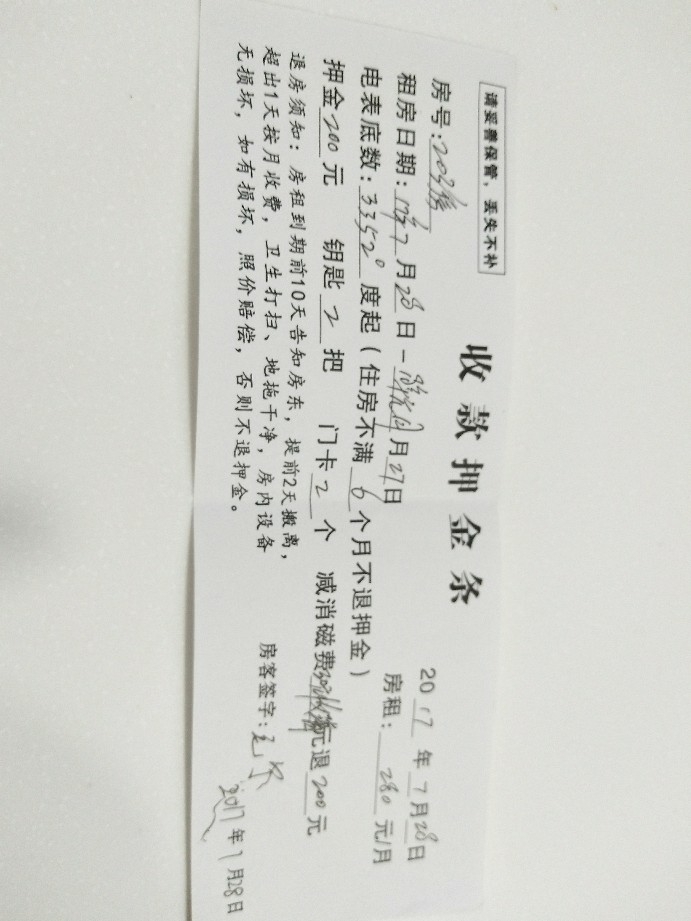 请妥善保管，丢失不补
收款押金条
2017年7月28日
房号：203
房租：280元/月
租房日期：7月28日－月27日
电表底数：3352°度起（住房不满6个月不退押金）
押金200元 钥匙2把 门卡2个 减消磁费元退200元
退房须知：房租到期前10天告知房东，提前2天搬离，
超出1天按月收费，卫生打扫、地拖干净，房内设备
无损坏，如有损坏，照价赔偿，否则不退押金。
房客签字：
2017年7月28日